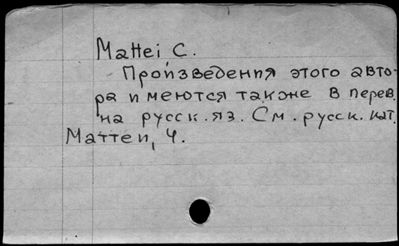 Mattei C.
Произведения этого авто-
ра имеются также в перев.
на русск. яз. См. русск. кат.
Маттеи, Ч.